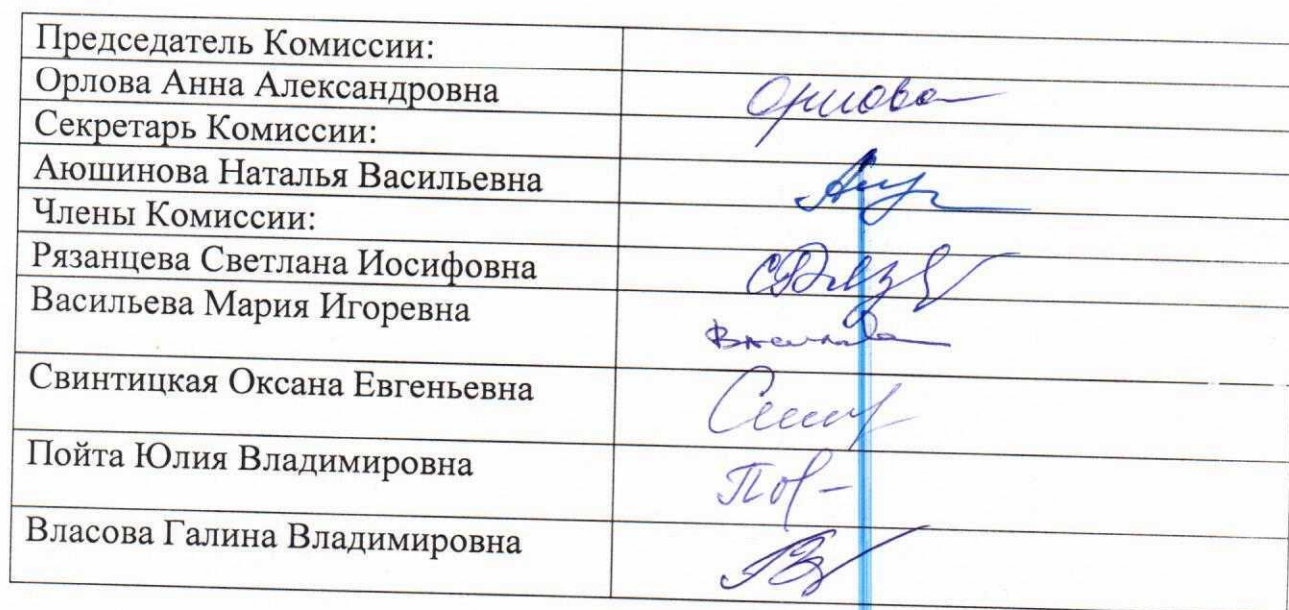 Председатель Комиссии:
Орлова Анна Александровна
Орлова
Секретарь Комиссии:
Аюшинова Наталья Васильевна
Члены Комиссии:
Рязанцева Светлана Иосифовна
Васильева Мария Игоревна
Свинтицкая Оксана Евгеньевна
Пойта Юлия Владимировна
Власова Галина Владимировна